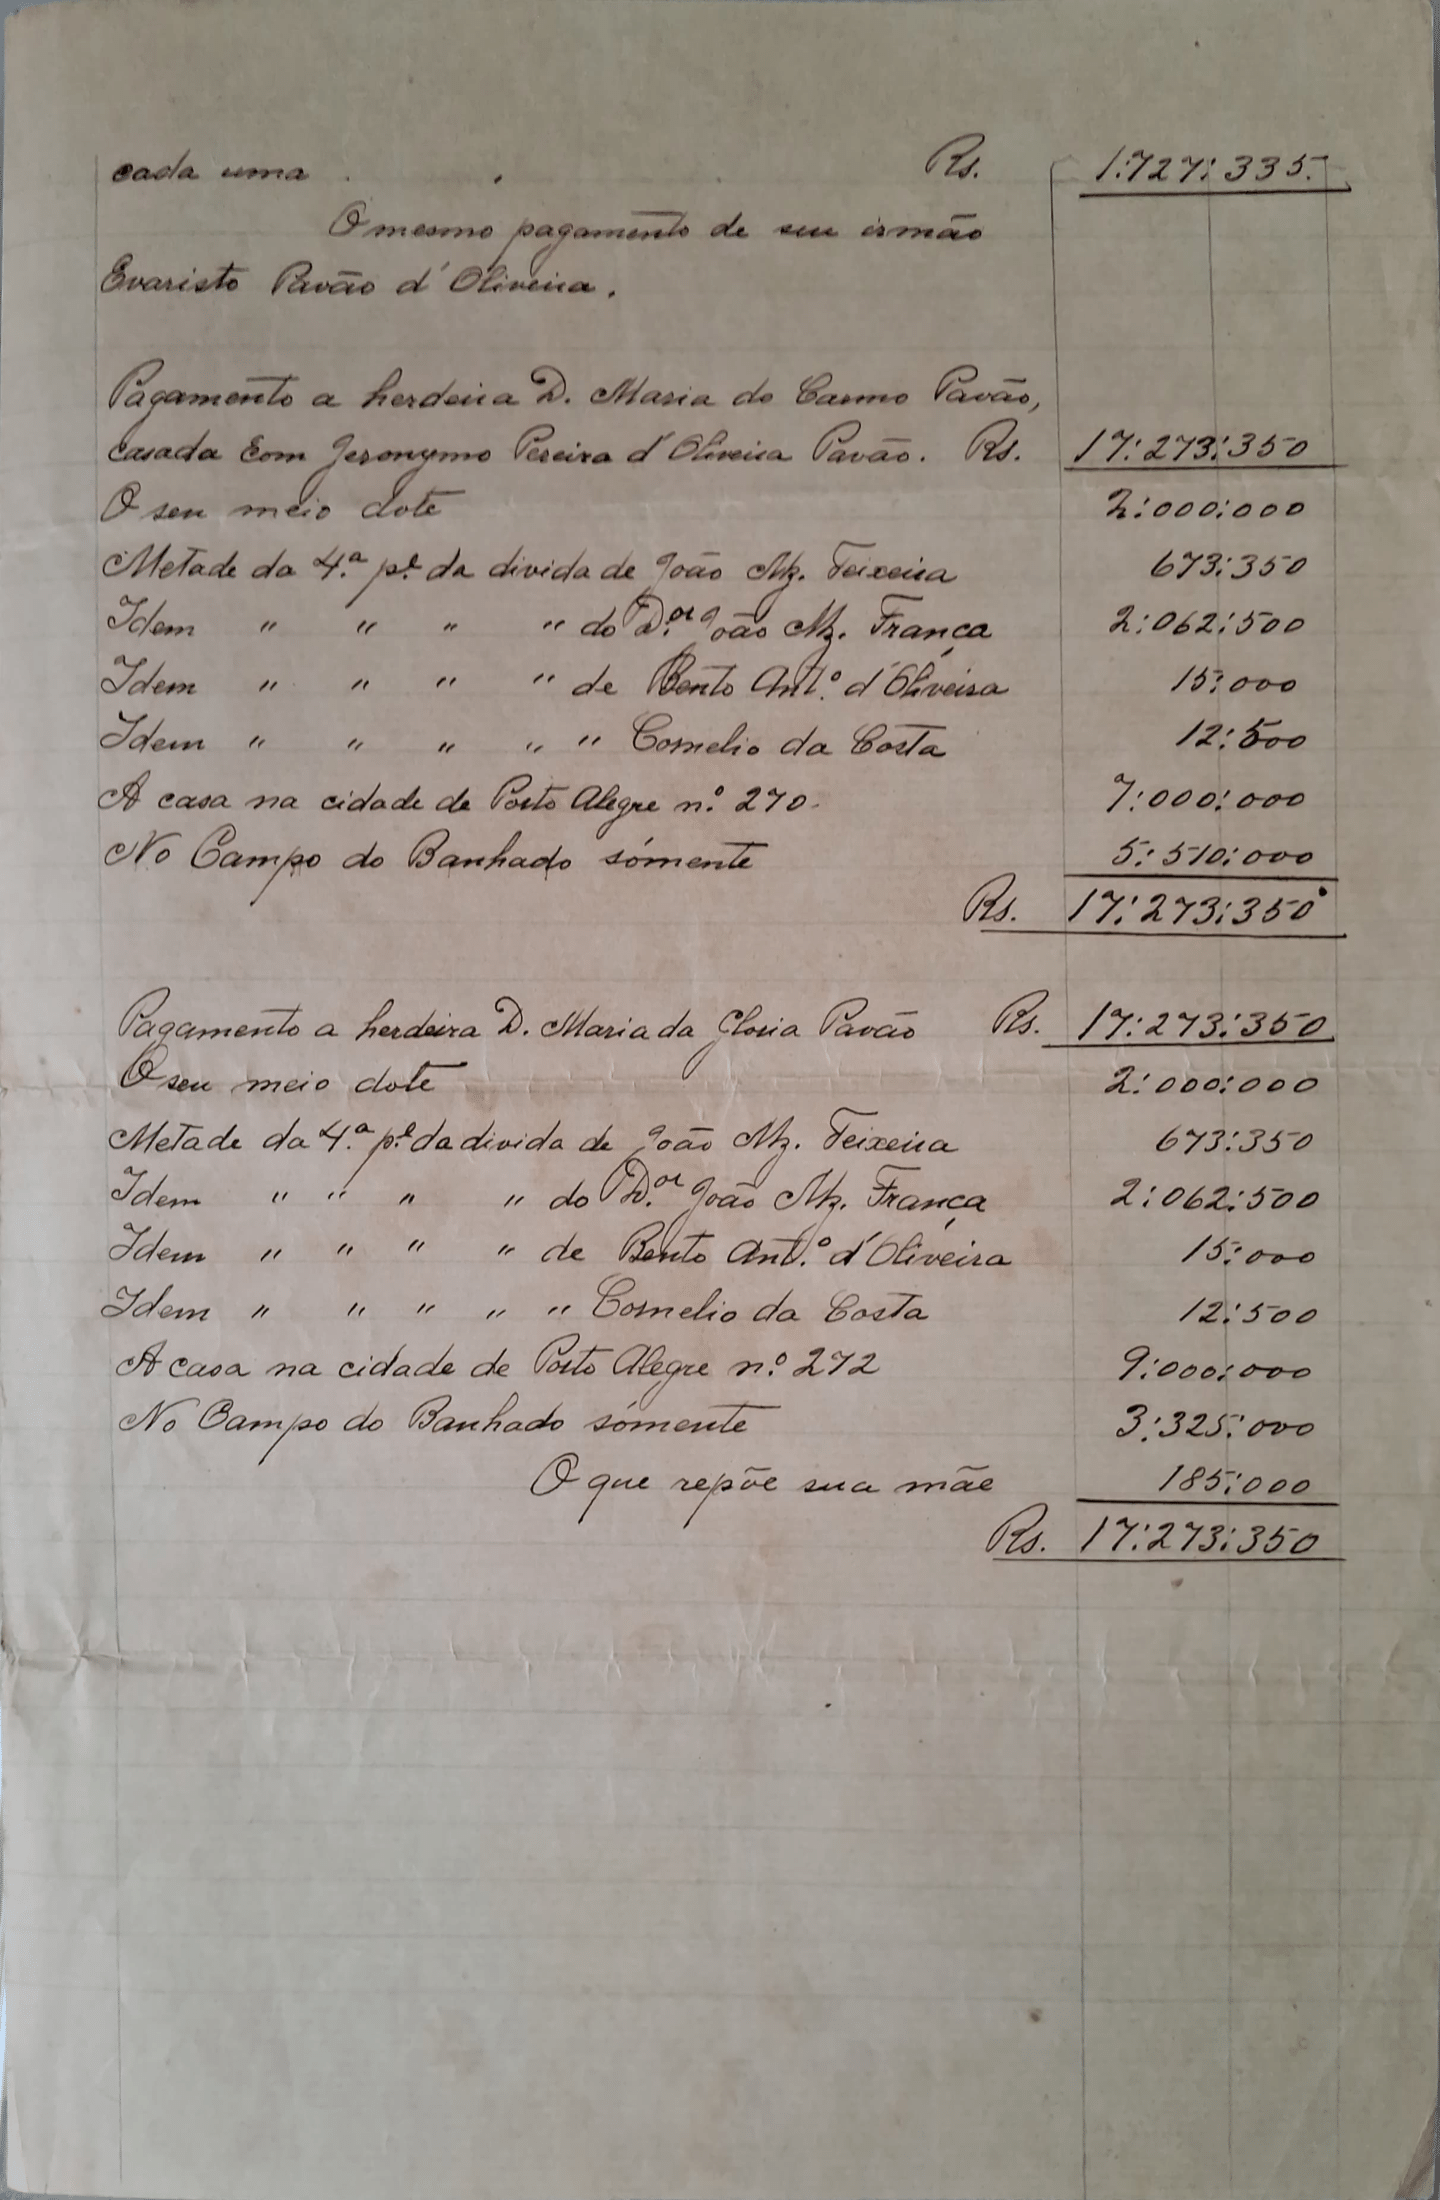 cada uma . . . Rs. 1:727:335.
O mesmo pagamento de seu irmão
Evaristo Pavão d'Oliveira.
Pagamento a herdeira D. Maria do Carmo Pavão,
casada com Jeronymo Pereira d'Oliveira Pavão. Rs. 17:273:350
O seu meio dote 2:000:000
Metade da 4.ª p.e da divida de João Mz. Teixeira 673:350
Idem " " " " do D.or João Mz. França 2:062:500
Idem " " " " de Bento Ant.º d'Oliveira 15:000
Idem " " " " " Cornelio da Costa 12:500
A casa na cidade de Porto Alegre n.º 270. 7:000:000
No Campo do Banhado sómente 5:510:000
Rs. 17:273:350
Pagamento a herdeira D. Maria da Gloria Pavão Rs. 17:273:350
O seu meio dote 2:000:000
Metade da 4.ª p.e da divida de João Mz. Teixeira 673:350
Idem " " " " do D.or João Mz. França 2:062:500
Idem " " " " de Bento Ant.º d'Oliveira 15:000
Idem " " " " " Cornelio da Costa 12:500
A casa na cidade de Porto Alegre n.º 272 9:000:000
No Campo do Banhado sómente 3:325:000
O que repõe sua mãe 185:000
Rs. 17:273:350